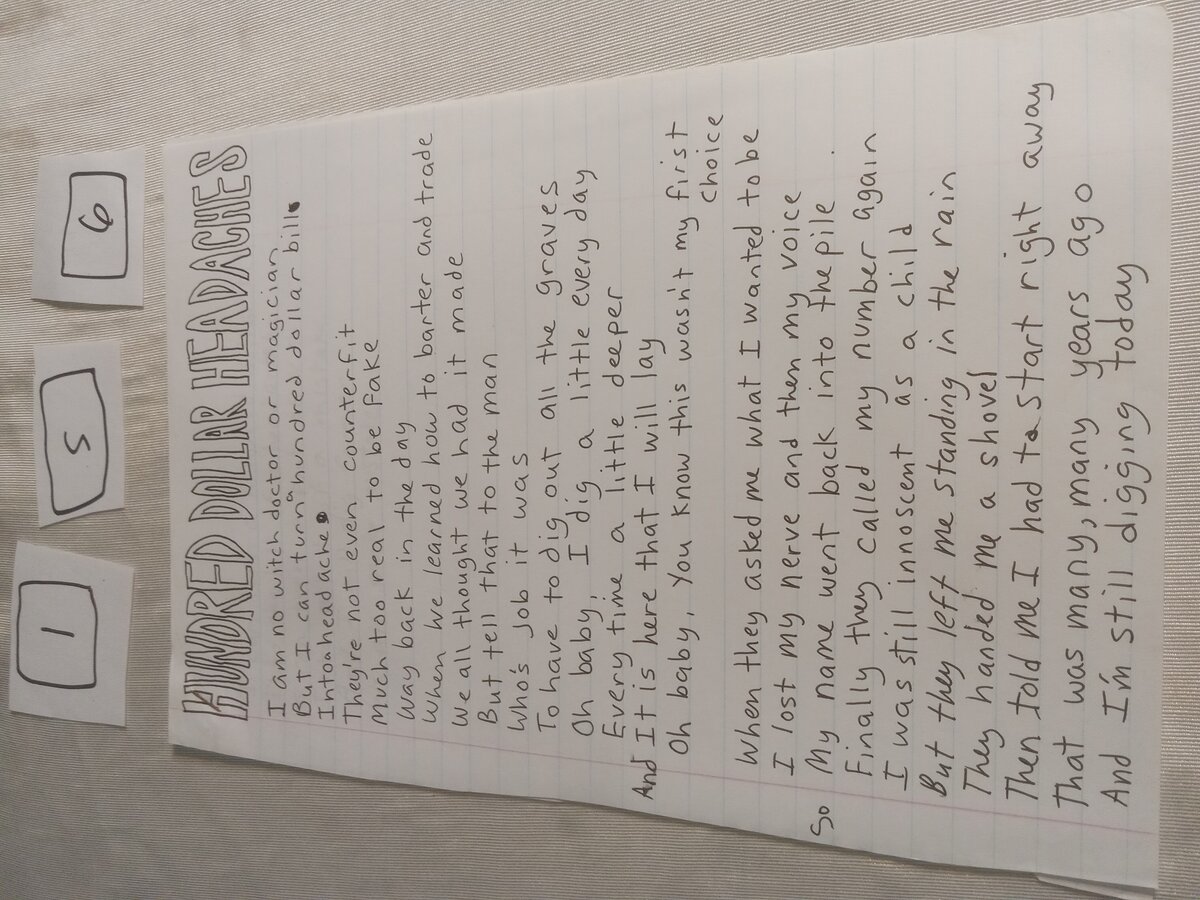 1 5 6
HUNDRED DOLLAR HEADACHES
I am no witch doctor or magician
But I can turn a hundred dollar bill
Into a headache
They're not even counterfit
Much too real to be fake
Way back in the day
When we learned how to barter and trade
We all thought we had it made
But tell that to the man
Who's job it was
To have to dig out all the graves
Oh baby, I dig a little every day
Every time a little deeper
And It is here that I will lay
Oh baby, you know this wasn't my first
choice
When they asked me what I wanted to be
I lost my nerve and then my voice
So My name went back into the pile
Finally they called my number again
I was still innoscent as a child
But they left me standing in the rain
They handed me a shovel
Then told me I had to start right away
That was many, many years ago
And I'm still digging today